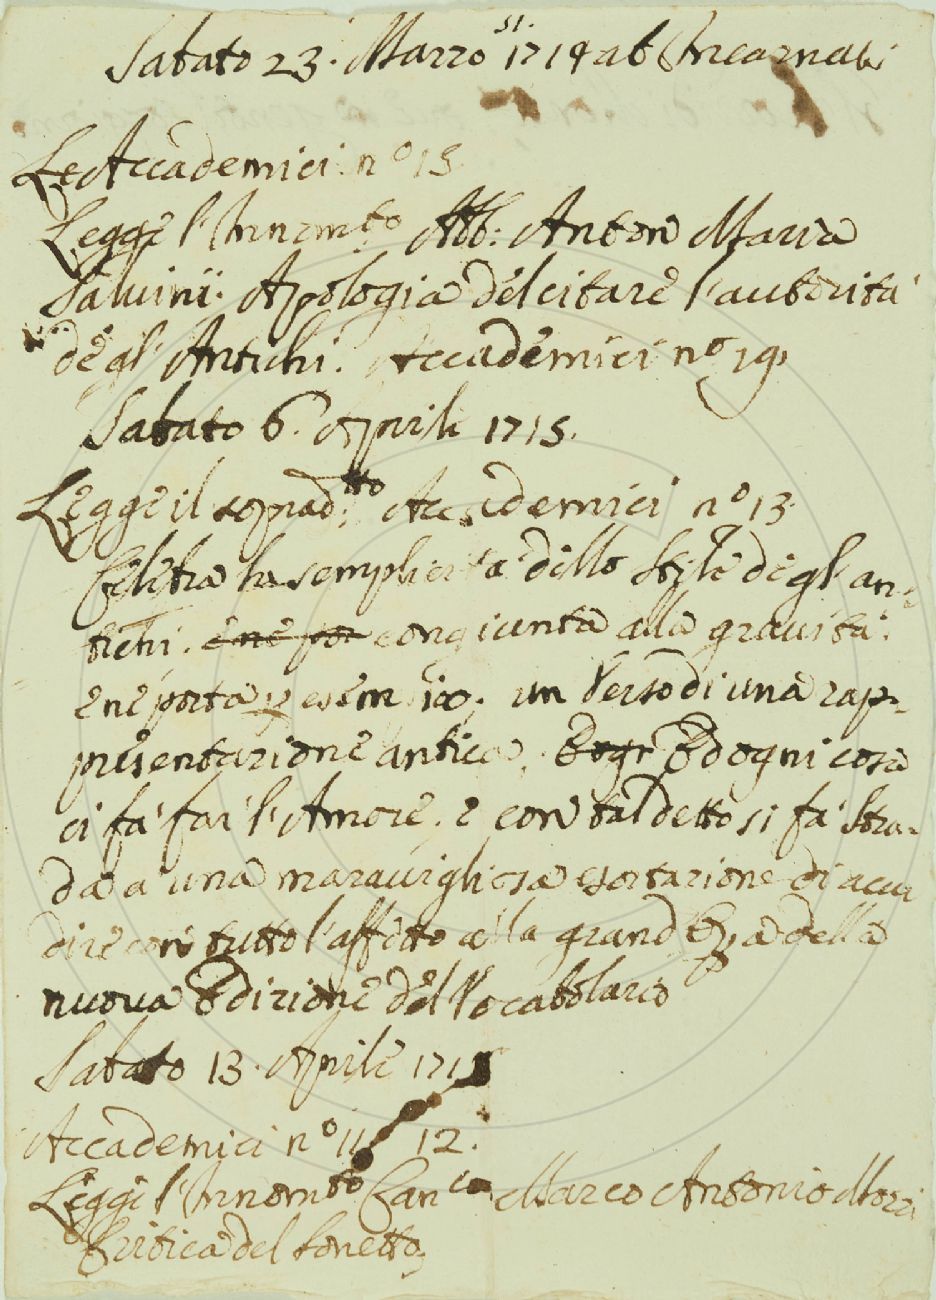 Sabato 23. Marzo 1714 ab Incarnat.
Le Accademici n° 15
Legge l'Innom.to Abb: Anton Maria
Salvini. Apologia del citare l'autorità
degl'Antichi. Accademici n° 19
Sabato 6. Aprile 1715.
Legge il soprad.tto Accademici n° 13
Celebra la semplicità dello Stile degl'an-
tichi. e ne por congiunta alla gravità.
e ne porta p esempio; un Verso di una rap-
presentazione antica, Eogn Ed ogni cosa
ci fà far l'Amore. e con tal detto si fà stra-
da a una maravigliosa esortazione di accu
dire con tutto l'affetto alla grandezza della
nuova Edizione del Vocabolario
Sabato 13. Aprile 1715
Accademici n° 11 12.
Leggi l'Innom.to Can.co Marco Antonio Mozzi
Critica del sonetto